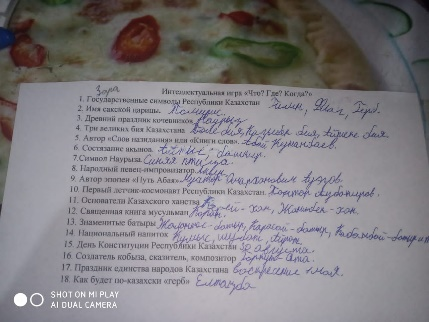 Зара
Интеллектуальная игра «Что? Где? Когда?»
1. Государственные символы Республики Казахстан Гимн, Флаг, Герб.
2. Имя сакской царицы. Томирис.
3. Древний праздник кочевников. Наурыз
4. Три великих бия Казахстана Толе бия, Казыбек бия, Айтеке бия.
5. Автор «Слов назидания» или «Книги слов». Абай Кунанбаев.
6. Состязание акынов. Айтыс
7.Символ Наурыза. Синяя птица
8. Народный певец-импровизатор. Акын
9. Автор эпопеи «Путь Абая» Мухтар Омарханович Ауэзов.
10. Первый летчик-космонавт Республики Казахстан. Тохтар Аубакиров.
11. Основатели Казахского ханства Керей-хан, Жанибек-хан.
12. Священная книга мусульман Коран.
13. Знаменитые батыры Карасай-батыр, Кабанбай-батыр
14. Национальный напиток Кумыс, шубат, айран.
15. День Конституции Республики Казахстан 30 августа.
16. Создатель кобыза, сказитель, композитор Коркыт ата.
17. Праздник единства народов Казахстана 1 мая.
18. Как будет по-казахски «герб» Елтанба
SHOT ON MI PLAY
AI DUAL CAMERA